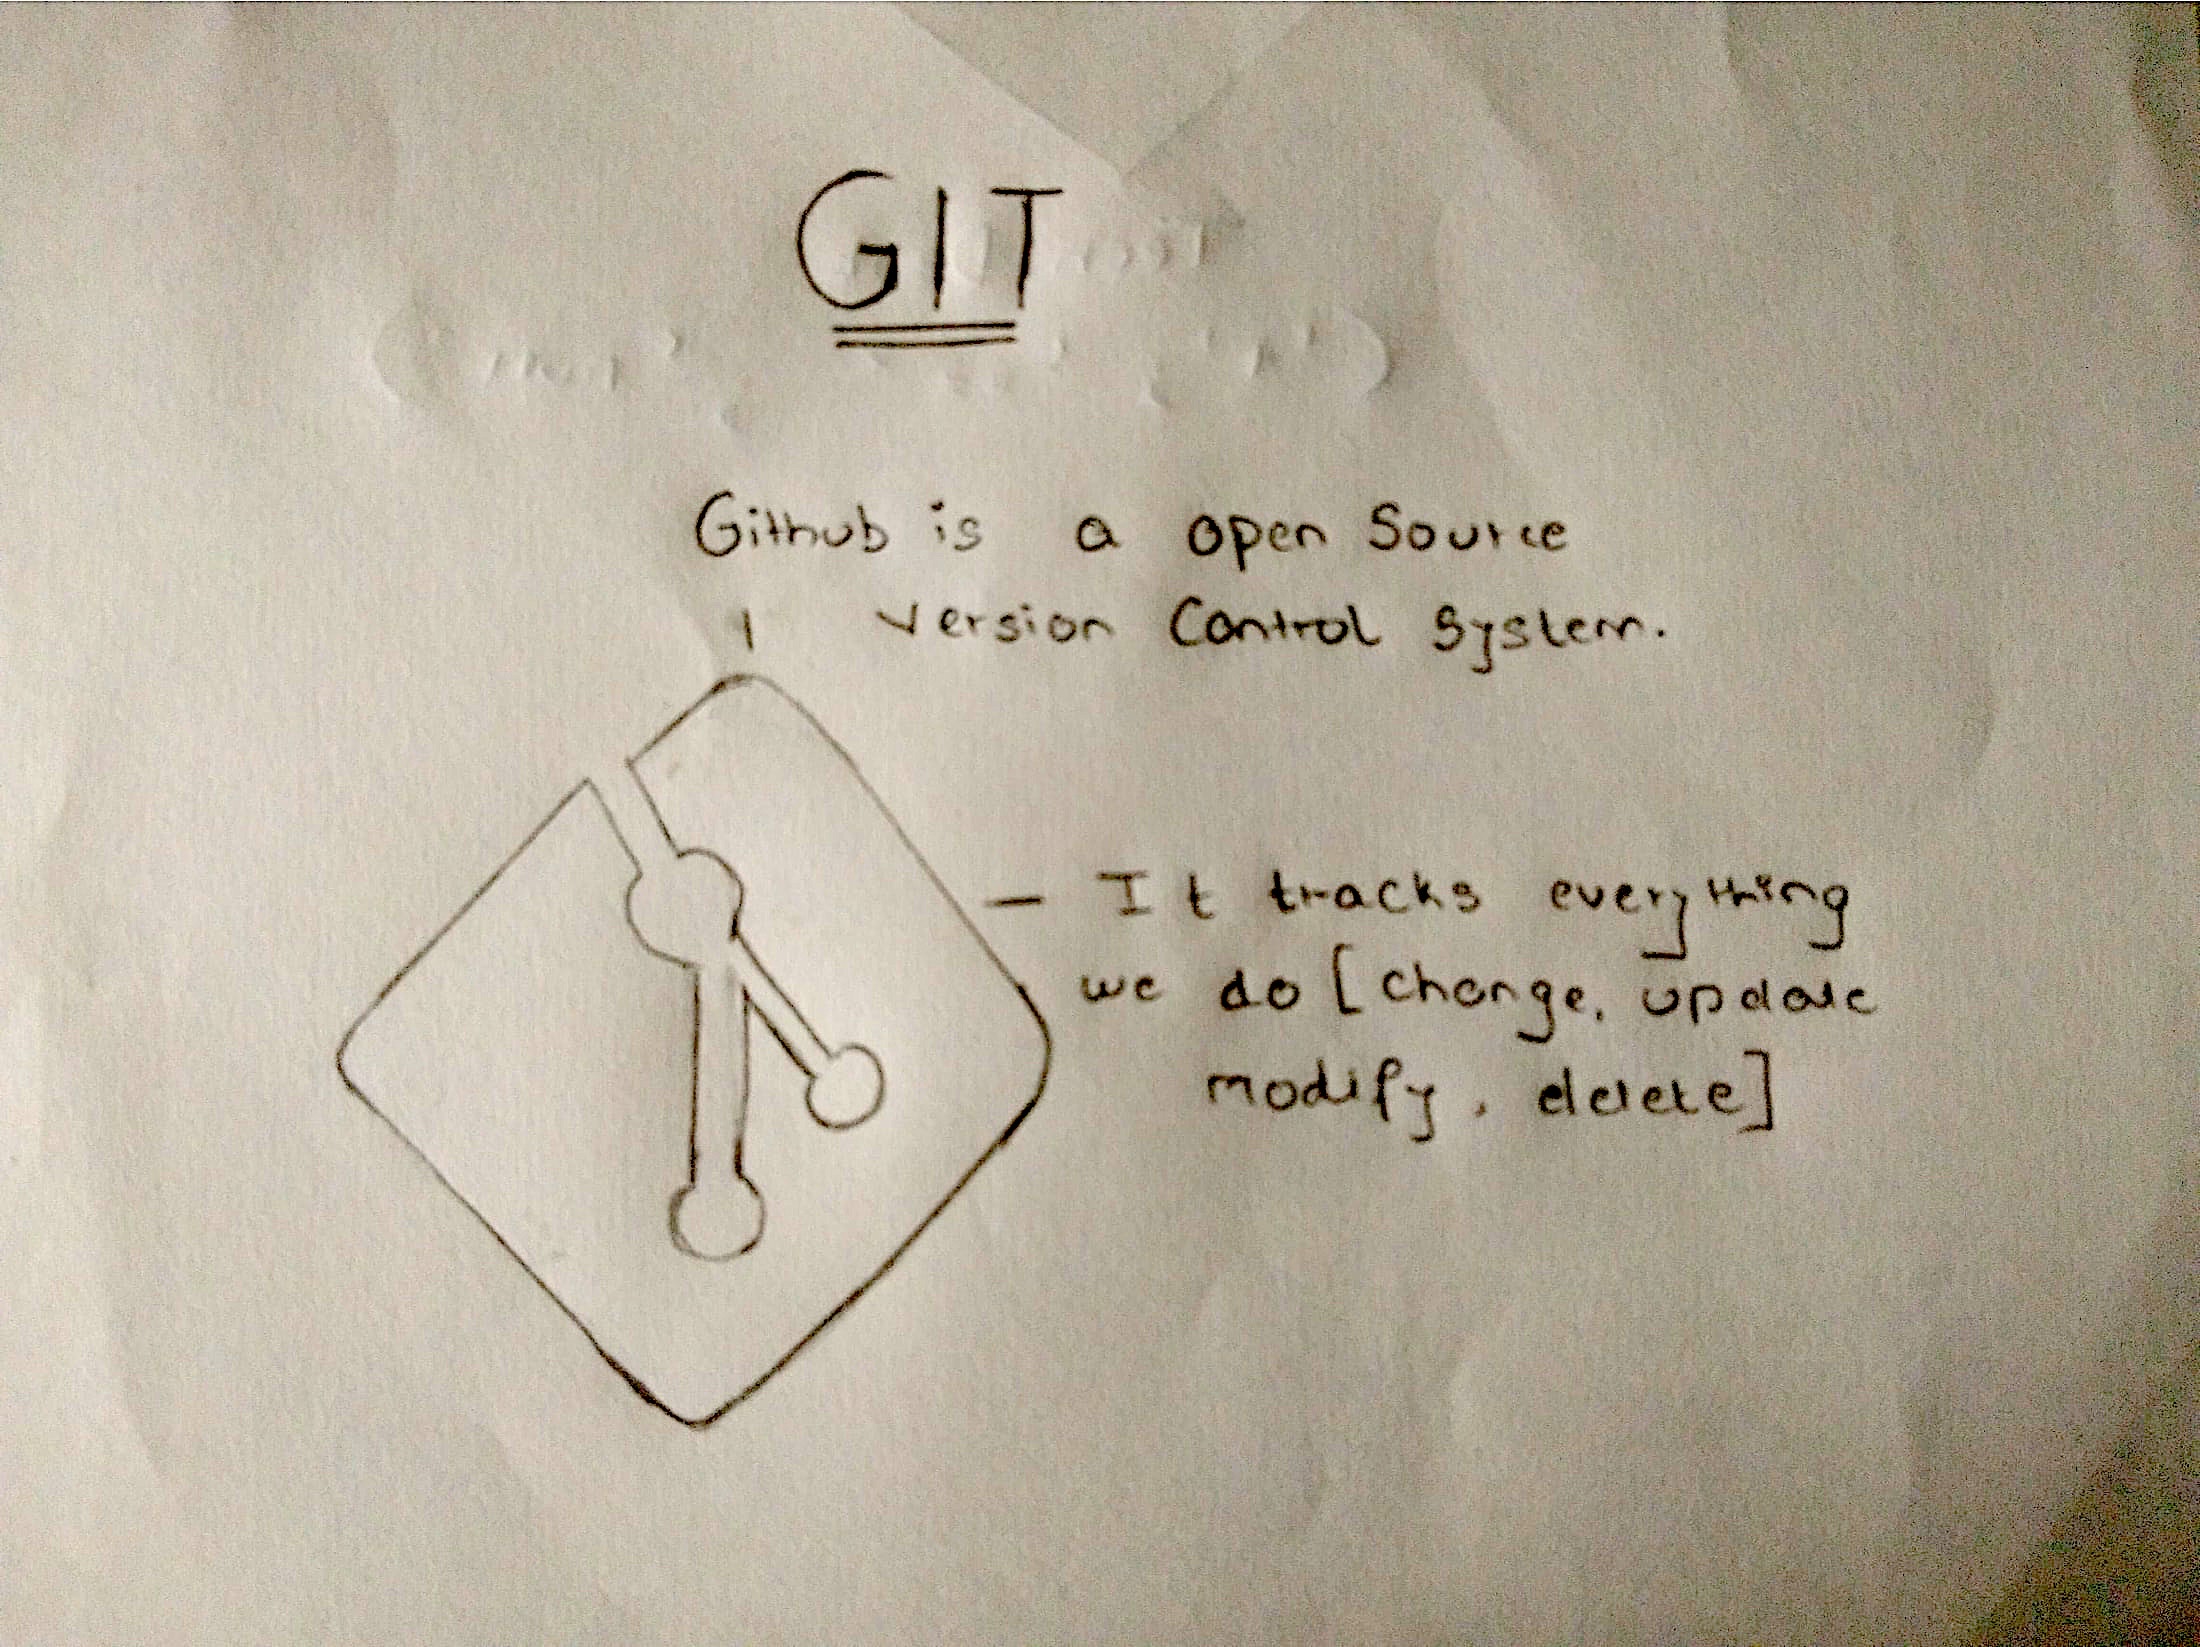 GIT
Github is a open Source
version Control System.
- It tracks everything
we do [change, update
modify, delete]